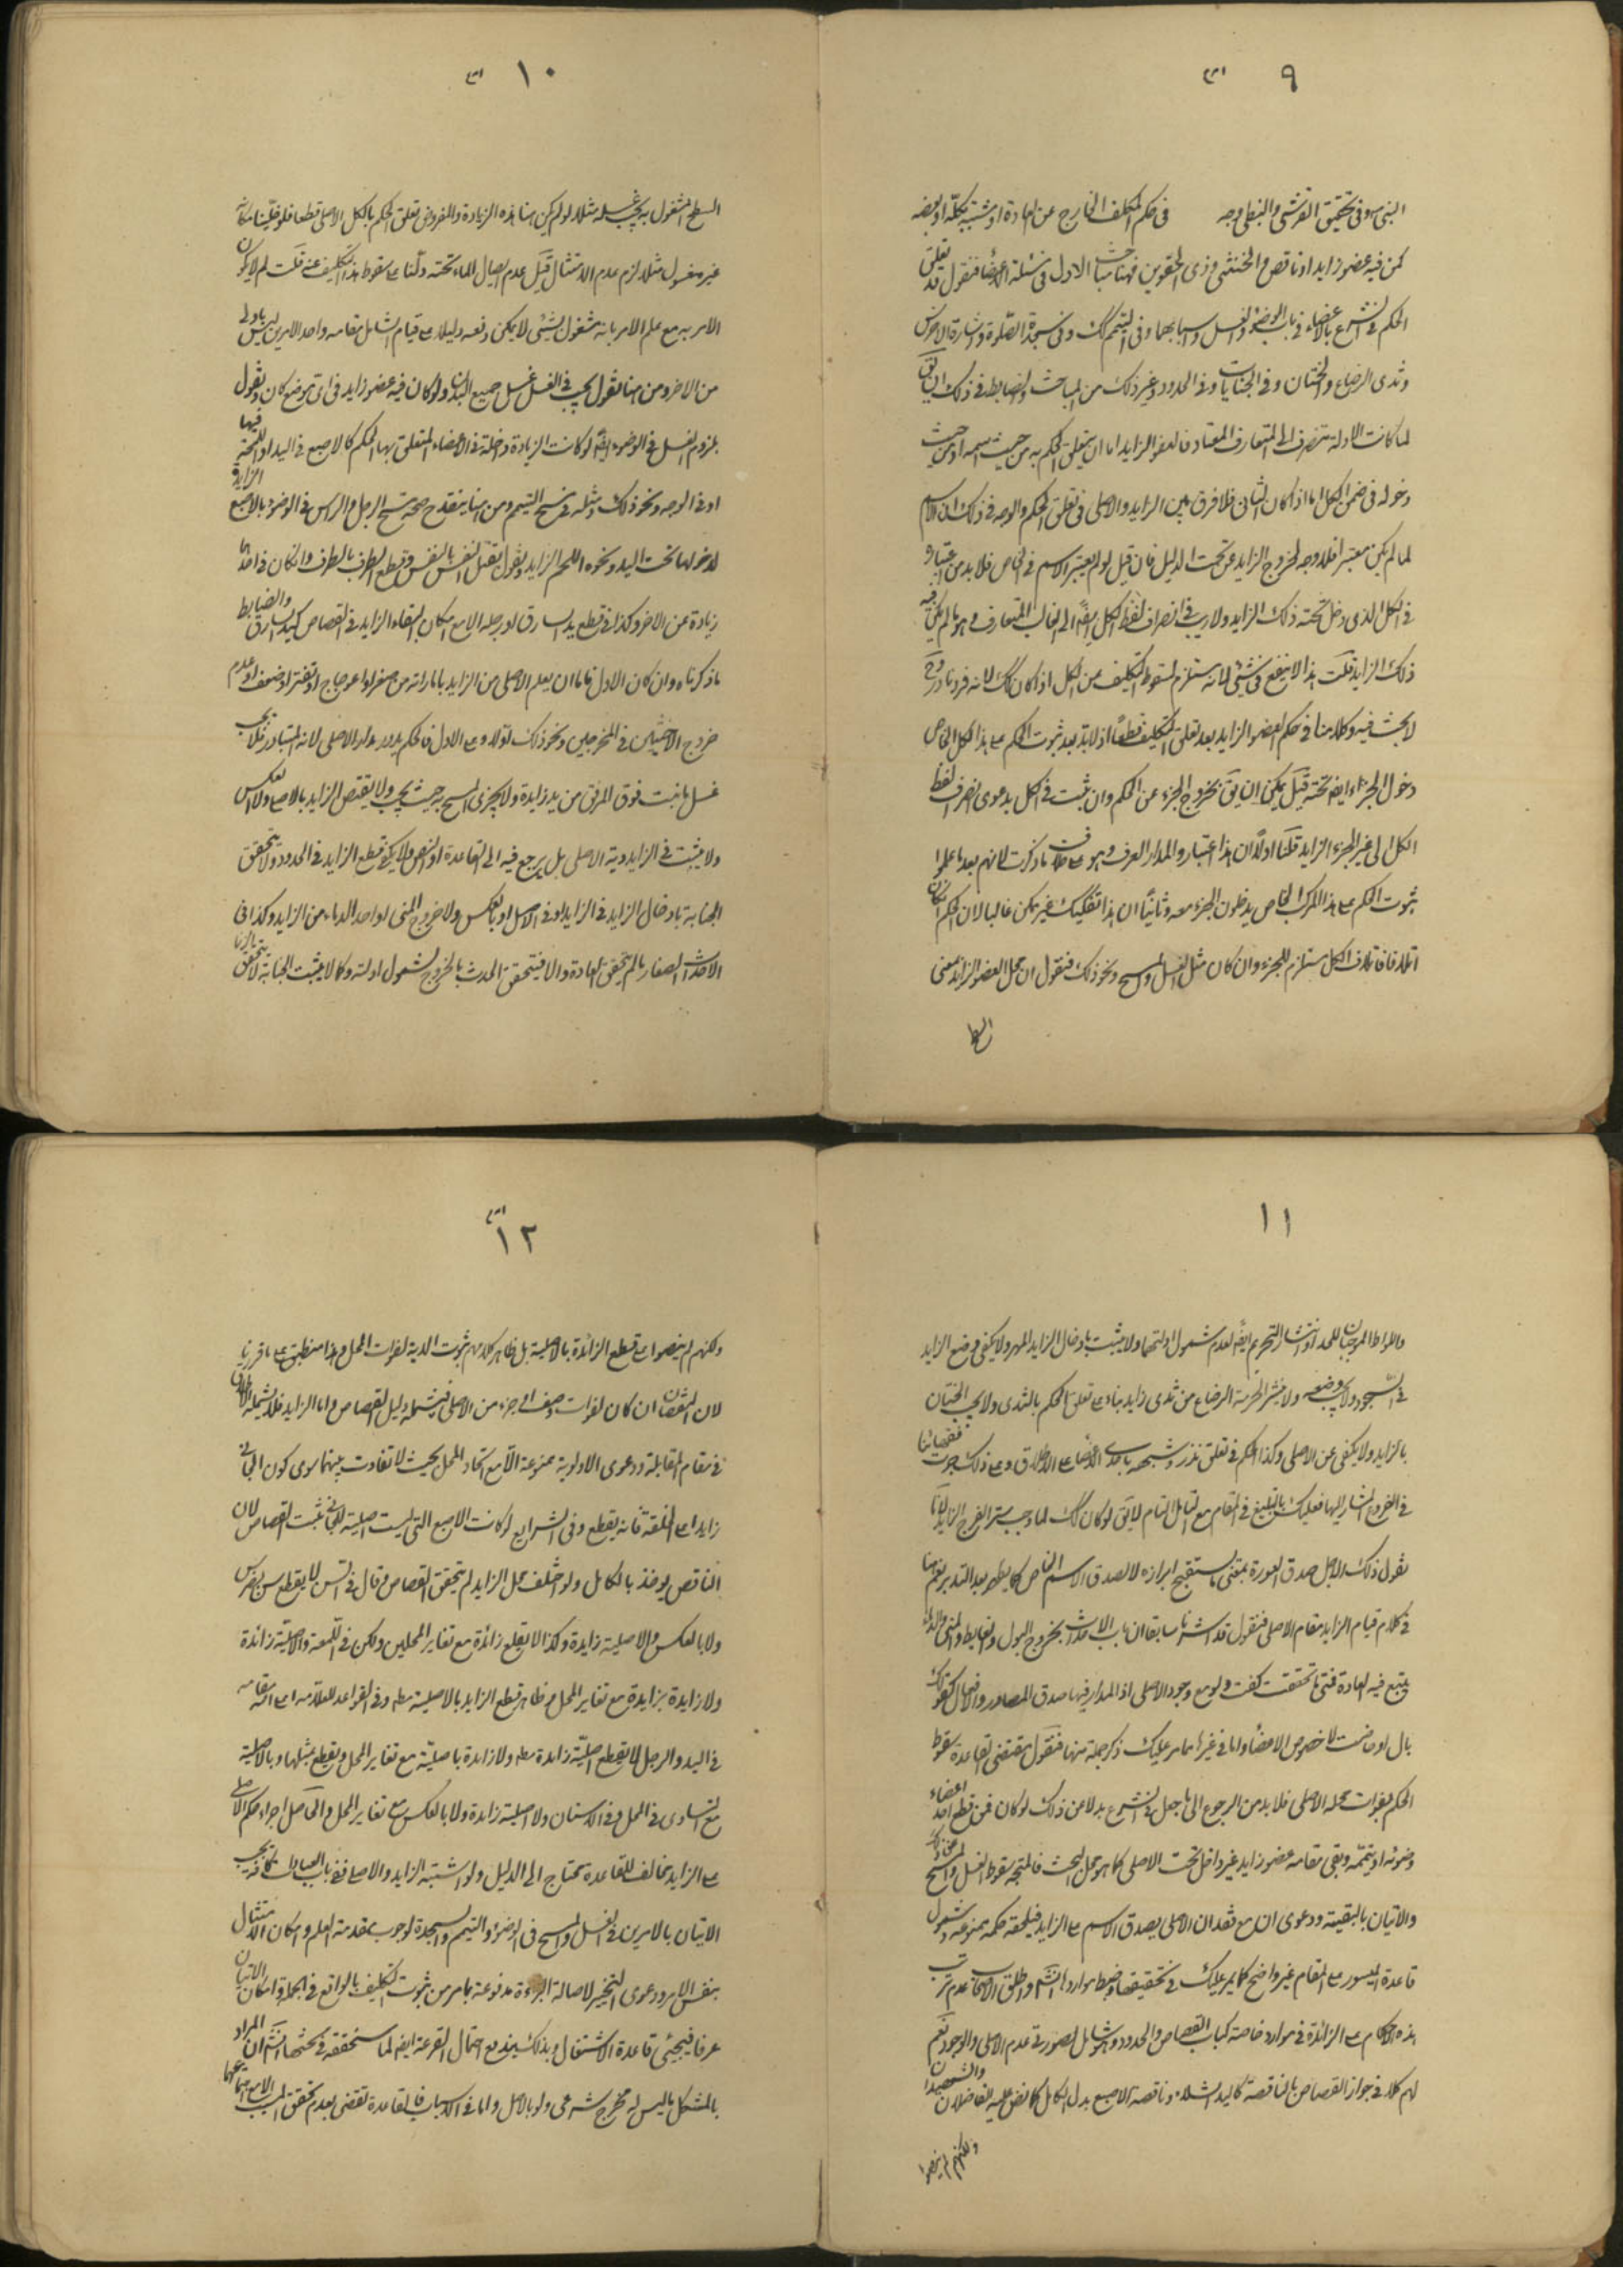 ٩
النبي وفي تحقيق القرشي والنبطي وجه في حكم المكلف الخارج عن العادة او مشتبه بكله او بعضه
كمن فيه عضو زايد او ناقص والخنثى وذي الحقوين فهنا مباحث الاول في مسئلة الاعضاء فنقول قد تعلق
الحكم في الشرع بالاعضاء في باب الوضوء والغسل واسبابهما وفي التيمم كك وفي سجدة الصلوة واشارة الاخرس
وثدى الرضاع والختان وفي الجنايات وفي الحدود وغير ذلك من المباحث والضابط في ذلك ان يق
لما كانت الادلة تنصرف الى المتعارف المعتاد فالعضو الزايد اما ان يتعلق الحكم به من حيث اسمه او من حيث
دخوله في ضمن الكل اما اذا كان الثاني فلا فرق بين الزايد والاصلي في تعلق الحكم والوجه في ذلك ان الاسم
لما لم يكن معتبرا فلا وجه لخروج الزايد عن تحت الدليل فان قيل لو لم يعتبر الاسم في الخاص فلا بد من اعتباره
في الكل الذي دخل تحته ذلك الزايد ولا ريب في انصراف لفظ الكل ايضا الى الغالب المتعارف وهو ما لم يكن فيه
ذلك الزايد قلت هذا لا ينفع في شيء لانه يستلزم لسقوط التكليف عن الكل اذا كان كك لانه فرد نادر وح
لا بحث فيه وكلامنا في حكم العضو الزايد بعد تعلق التكليف قطعا اذ لا بد بعد ثبوت الحكم على هذا الكل الخاص
دخول الجزء ايضا تحته قيل يمكن ان يق بخروج الجزء عن الحكم وان ثبت في الكل بدعوى انصراف لفظ
الكل الى غير الجزء الزايد قلنا اولا ان هذا اعتبار والمدار العرف وهو على خلاف ما ذكرت لانهم بعد ما علموا
ثبوت الحكم على هذا المركب الخاص يدخلون الجزء معه وثانيا ان هذا تفكيك غير ممكن غالبا لان الحكم ان كان
اتلافا فاتلاف الكل مستلزم للجزء وان كان مثل الغسل والمسح ونحو ذلك فنقول ان جعل العضو الزايد بمعنى
١٠
السطح المشغول به يجب غسله مثلا لو لم يكن هنا هذه الزيادة والمفروض تعلق الحكم بالكل الاصلي قطعا فلو قلنا مكانه
غير مغسول مثلا لزم عدم الامتثال قيل عدم ايصال الماء تحته دلنا على سقوط هذا التكليف عنه قلت لم لا يكون
الامر به مع علم الامر بانه مشغول بشيء لا يمكن رفعه دليلا على قيام الشاغل مقامه واحد الامرين ليس باولى
من الاخر ومن هنا نقول يجب في الغسل غسل جميع البدن ولو كان فيه عضو زايد في اي موضع كان ونقول
بلزوم الغسل في الوضوء ايضا لو كانت الزيادة داخلة في الاعضاء المتعلق بها الحكم كالاصبع في اليد او اللحمة فيها
او في الوجه ونحو ذلك ومثله في مسح التيمم ومن هنا ينقدح صحة مسح الرجل والراس في الوضوء بالاصبع الزايدة
لدخولها تحت اليد ونحوه اللحم الزايد ونقول بقتل النفس بالنفس وقطع الطرف بالطرف وان كان في احدهما
زيادة عن الاخر وكذا في قطع يد السارق او رجله الا مع امكان ابقاء الزايد في القصاص كيد السارق والضابط
ما ذكرناه وان كان الاول فاما ان يعلم الاصلي من الزايد بامارته من صغر او اعوجاج او تغير او ضعف او عدم
خروج الاخبثين في المخرجين ونحو ذلك اولا وعلى الاول فالحكم يدور مدار الاصلي لانه المتبادر فلا يجب
غسل ما نبت فوق المرفق من يد زايدة ولا يجزي المسح به حيث يجب ولا يقتص الزايد بالاصلي ولا العكس
ولا يثبت في الزايد دية الاصلي بل يرجع فيه الى القاعدة او النص ولا يكفي قطع الزايد في الحدود ولا يتحقق
الجنابة بادخال الزايد في الزايد او في الاصل او بالعكس ولا خروج المني او احد الدماء من الزايد وكذا في
الاحداث الصغار ما لم يتحقق العادة والا فيتحقق الحدث بالخروج لشمول ادلته وكما لا يثبت الجنابة لا يتحقق الزنا
١١
واللواط الموجبان للحد او انتشار التحريم ايضا لعدم شمول ادلتهما ولا يثبت بادخال الزايد المهر ولا يكفي وضع الزايد
في السجود ولا يجب وضعه ولا ينشر الحرمة الرضاع من ثدى زايد بناء على تعلق الحكم بالثدى ولا يجب الختان
بالزايد ولا يكفي عن الاصلي وكذا الحكم في تعلق نذر وشبهه باحدى الاعضاء على الاطلاق وعلى ذلك جرت فقهائنا
في الفروع المشار اليها فعليك بالتبليغ في المقام مع التامل التام لا يق لو كان كك لما وجب ستر الفرج الزايد لانا
نقول ذلك لاجل صدق العورة بمعنى ما يستقبح ابرازه لا لصدق الاسم الخاص كما يظهر بعد التدبر نعم هنا
في كلام قيام الزايد مقام الاصلي فنقول قد اشرنا سابقا ان باب الاحداث بخروج البول والغايط والمني والدم
يتبع فيه العادة فمتى ما تحققت كفت ولو مع وجود الاصلي اذ المدار فيها صدق المصادر والافعال كقولك
بال او حاضت لا خصوص الاعضاء واما في غيرها مما مر عليك ذكر جملة منها فنقول مقتضى القاعدة سقوط
الحكم بفوات محله الاصلي فلا بد من الرجوع الى ما جعل في الشرع بدلا عن ذلك لو كان فمن قطع احد اعضاء
وضوئه او تيممه وبقى مقامه عضو زايد غير داخل تحت الاصلي كما هو محل البحث فالمتجه سقوط الغسل والمسح
والاتيان بالبقية ودعوى ان مع فقدان الاصلي يصدق الاسم على الزايد فيلحقه حكمه ممنوعة وشمول
قاعدة الميسور على المقام غير واضح كما يمر عليك في تحقيقها وضبط مواردها انشاء واطلق الاصحاب عدم ترتب
هذه الاحكام على الزائدة في موارد خاصة كباب القصاص والحدود وهو شامل لصورتي عدم الاصلي والوجود نعم
لهم كلام في جواز القصاص بالناقصة كاليد الشلاء وناقصة الاصبع بدل الكامل كما نص عليه الفاضلان والشهيدان
ولكنهم لم ينصوا
١٢
ولكنهم لم ينصوا على قطع الزائدة بالاصلية بل ظاهر كلامهم ثبوت الدية لفوات المحل وهذا منطبق على ما قررنا
لان النقصان ان كان لفوات وصف او جزء من الاصلي فيشمله دليل القصاص واما الزايد فلا يشمله الاطلاق
في مقام المقابلة ودعوى الاولوية ممنوعة الا مع اتحاد المحل بحيث لا تفاوت بينهما سوى كون الجاني
زايدا على الخلقة فانه يقطع وفي الشرايع لو كانت الاصبع التي ليست اصلية للجاني ثبت القصاص لان
الناقص يوخذ بالكامل ولو اختلف محل الزايد لم يتحقق القصاص وقال في السن لا يقطع سن بضرس
ولا بالعكس ولا اصلية زايدة وكذا لا يقلع زائدة مع تغاير المحلين ولكن في اللمعة ولا اصلية زائدة
ولا زايدة بزايدة مع تغاير المحل وظاهره قطع الزايد بالاصلية مطه وفي القواعد للعلامة اعلى الله مقامه
في اليد والرجل لا يقطع اصلية زايدة مطه ولا زايدة باصلية مع تغاير المحل ويقطع بمثلها وبالاصلية
مع التساوي في المحل وفي الاسنان ولا اصلية زايدة ولا بالعكس مع تغاير المحل والحاصل اجراء حكم الاصلي
على الزايد مخالف للقاعدة محتاج الى الدليل ولو اشتبه الزايد والاصلي ففي باب العبادات كافة يجب
الاتيان بالامرين في الغسل والمسح في الوضوء والتيمم والسجدة لوجوب مقدمة العلم وامكان الامتثال
بنفس الامر ودعوى التخيير لاصالة البراءة مدفوعة بما مر من ثبوت التكليف بالواقع في الجملة وامكان الاتيان
عرفا فيجيء قاعدة الاشتغال وبذلك يندفع احتمال القرعة ايضا لما سنحققه في بحثها انشاء ان المراد
بالمشكل ما ليس له مخرج شرعي ولو بالاصل واما في الاسباب فالقاعدة تقتضي بعدم تحقق المسبب الا مع اجتماعها